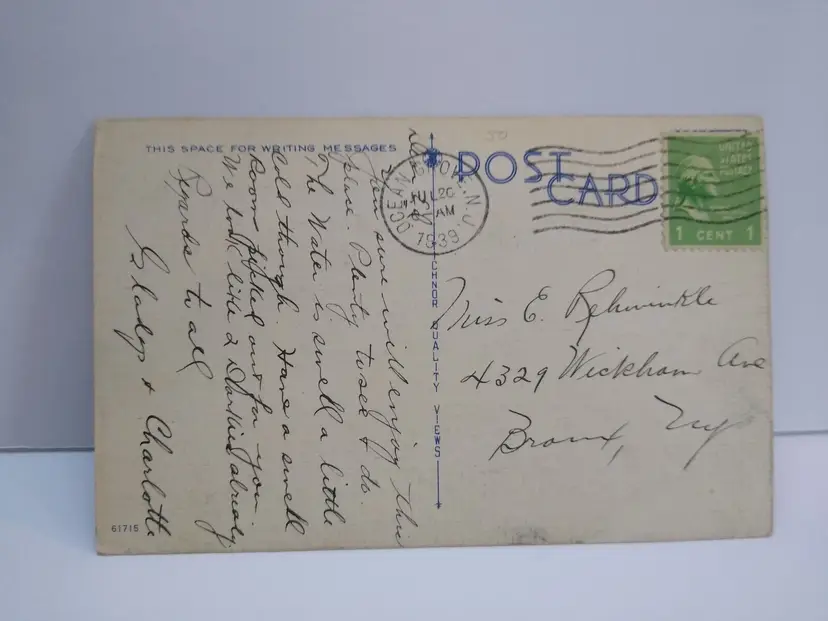 THIS SPACE FOR WRITING MESSAGES
POST CARD
OCEAN GROVE, N.J.
JUL 20
AM
1939
UNITED
STATES
POSTAGE
1 CENT 1
You sure will enjoy this
place. Plenty to see & do.
The Water is swell a little
cold though. Have a swell
Room picked out for you.
We look like 2 Darkies already
Regards to all
Gladys & Charlotte
Miss E. Rehwinkle
4329 Wickham Ave
Bronx, NY
QUALITY VIEWS
61715